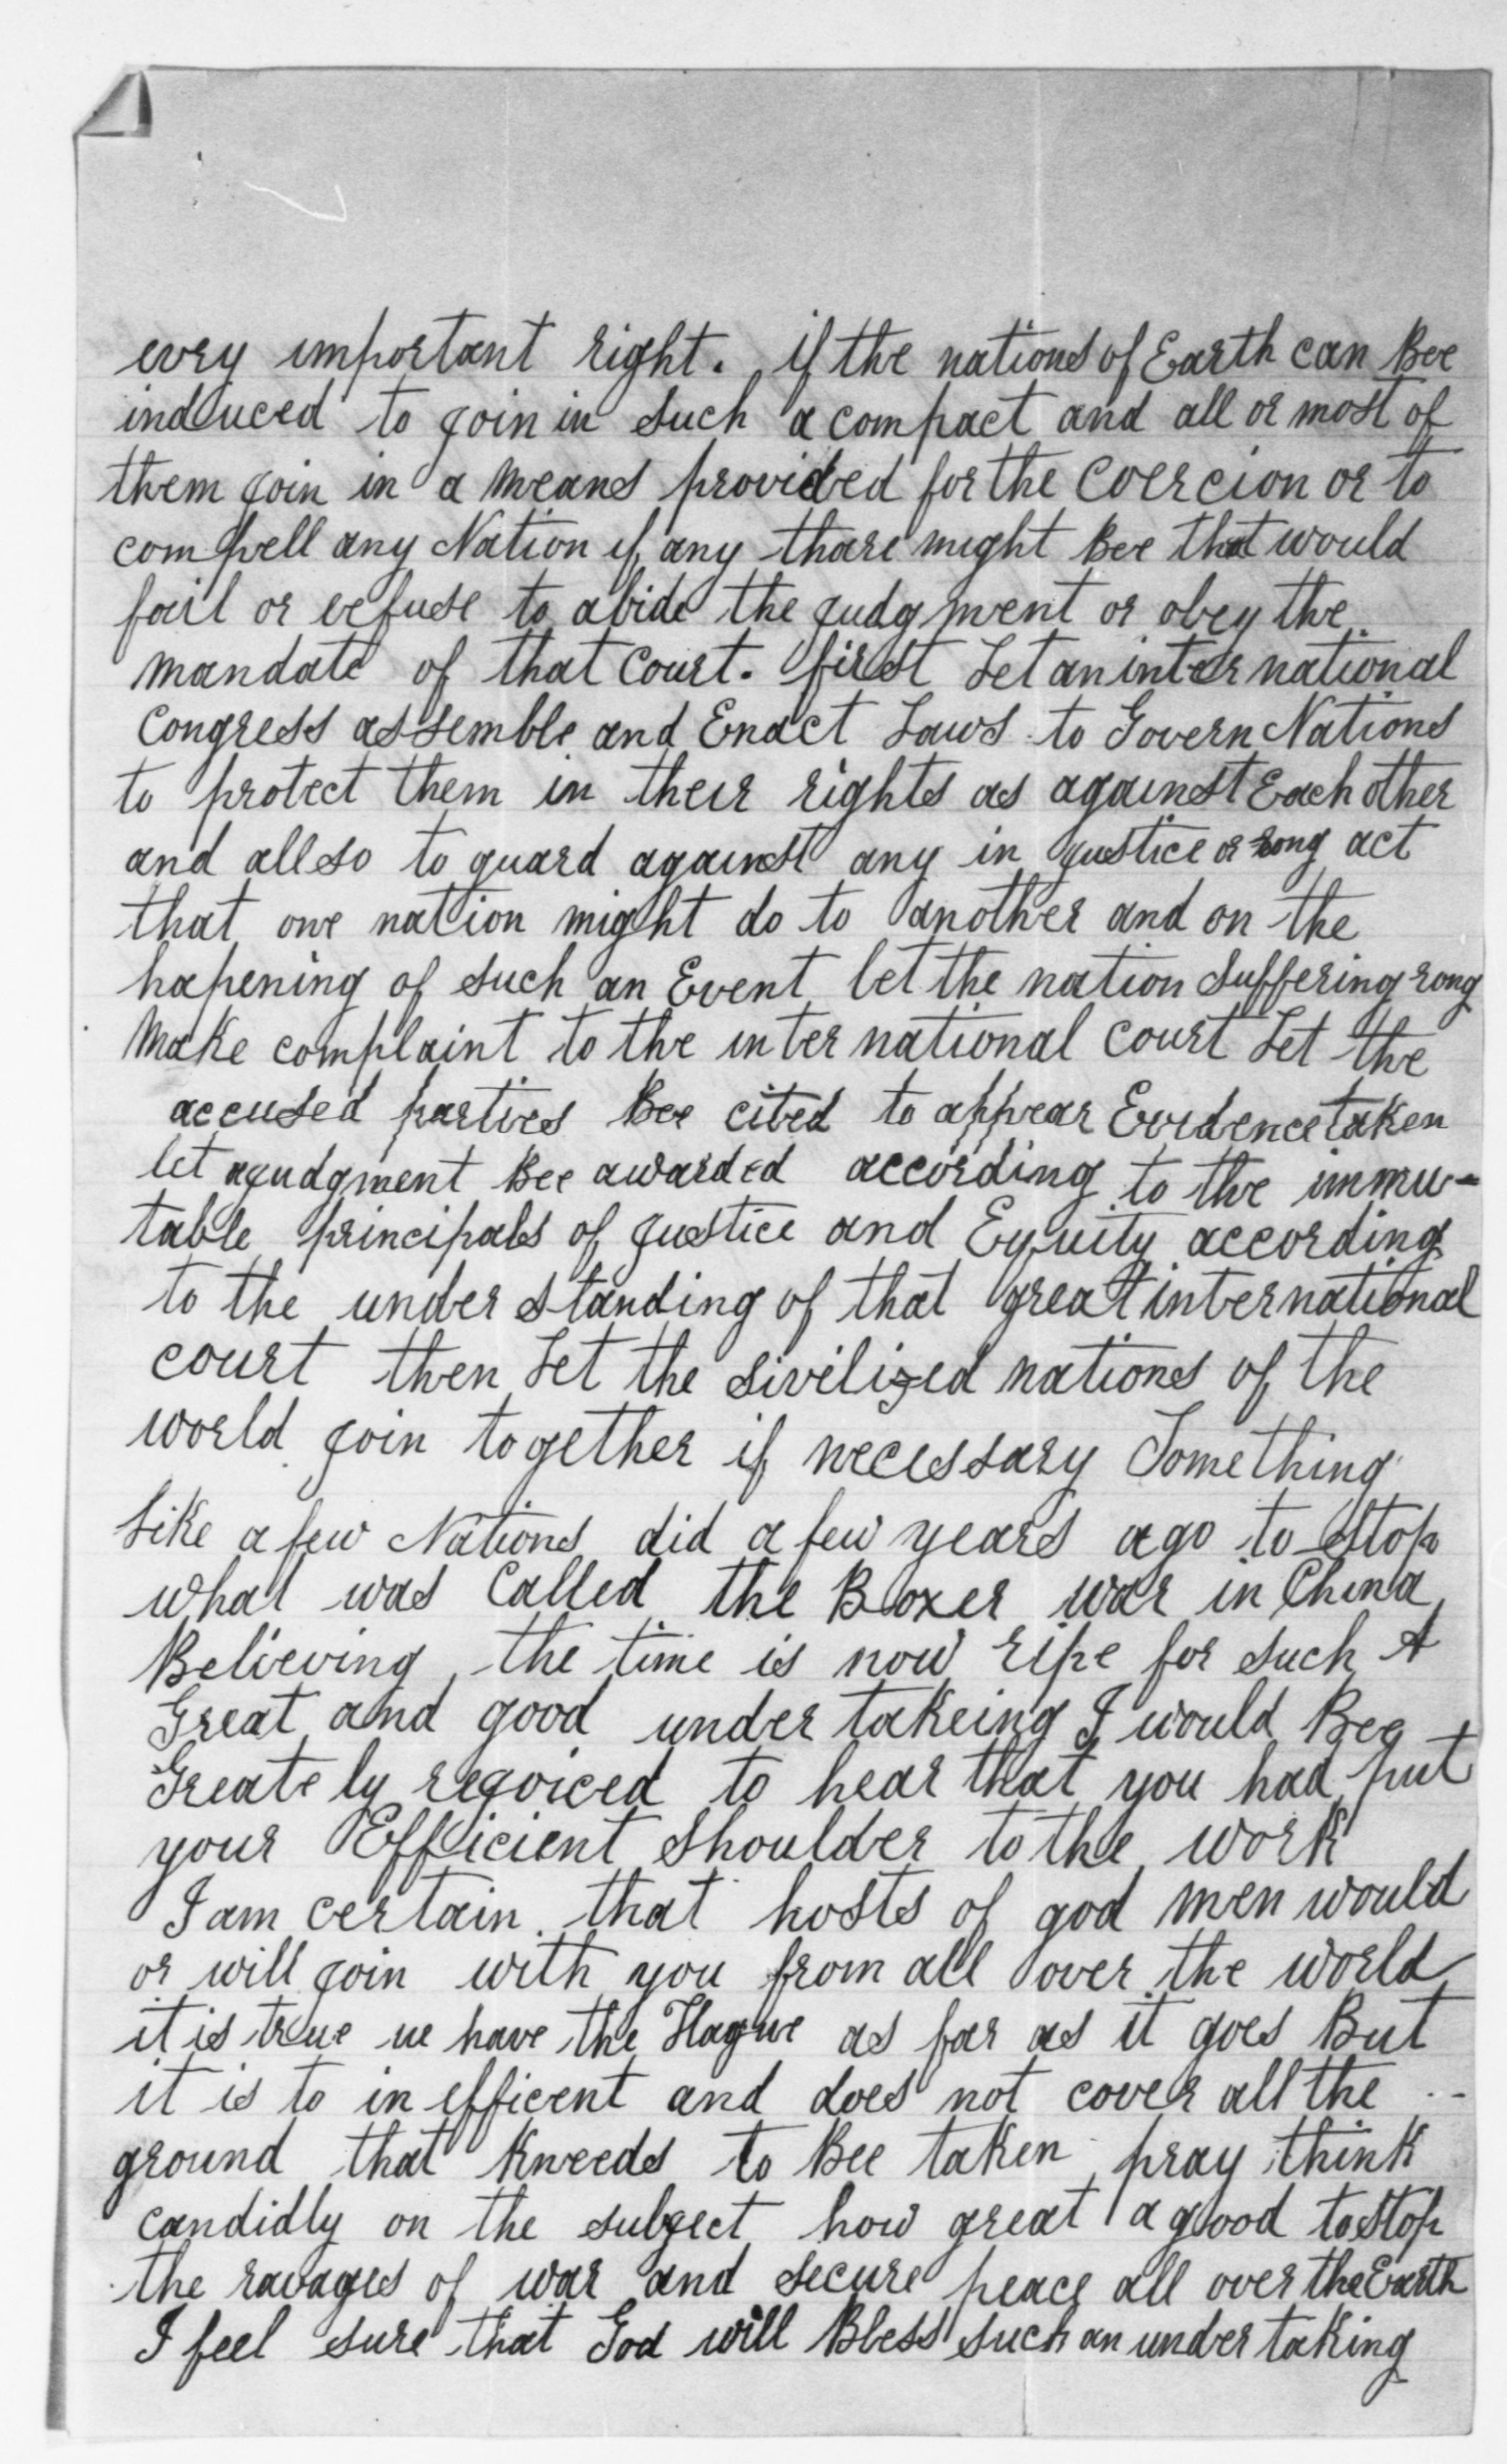 evry important right. if the nations of Earth can Bee
induced to join in such a compact and all or most of
them join in a means provided for the Coercion or to
compell any Nation if any thare might Bee that would
fail or refuse to abide the judgment or obey the
mandate of that Court. first Let an inter national
Congress assemble and Enact Laws to Govern Nations
to protect them in their rights as against Each other
and allso to guard against any in justice or rong act
that one nation might do to another and on the
hapening of such an Event let the nation suffering rong
make complaint to the inter national court Let the
accused parties Bee cited to appear Evidence taken
let a judgment Bee awarded according to the immu-
table principals of justice and Equity according
to the under standing of that great international
court then Let the sivilized nations of the
world join together if necessary Something
like a few Nations did a few years ago to stop
what was Called the Boxer war in China
Believing the time is now ripe for such A
Great and good under takeing I would Bee
Greate ly rejoiced to hear that you had put
your Efficient shoulder to the work
I am certain that hosts of god men would
or will join with you from all over the world
it is true we have the Hague as far as it goes But
it is to in efficent and does not cover all the --
ground that kneeds to Bee taken pray think
candidly on the subject how great a good to stop
the ravages of war and secure peace all over the Earth
I feel sure that God will Bless such an under taking